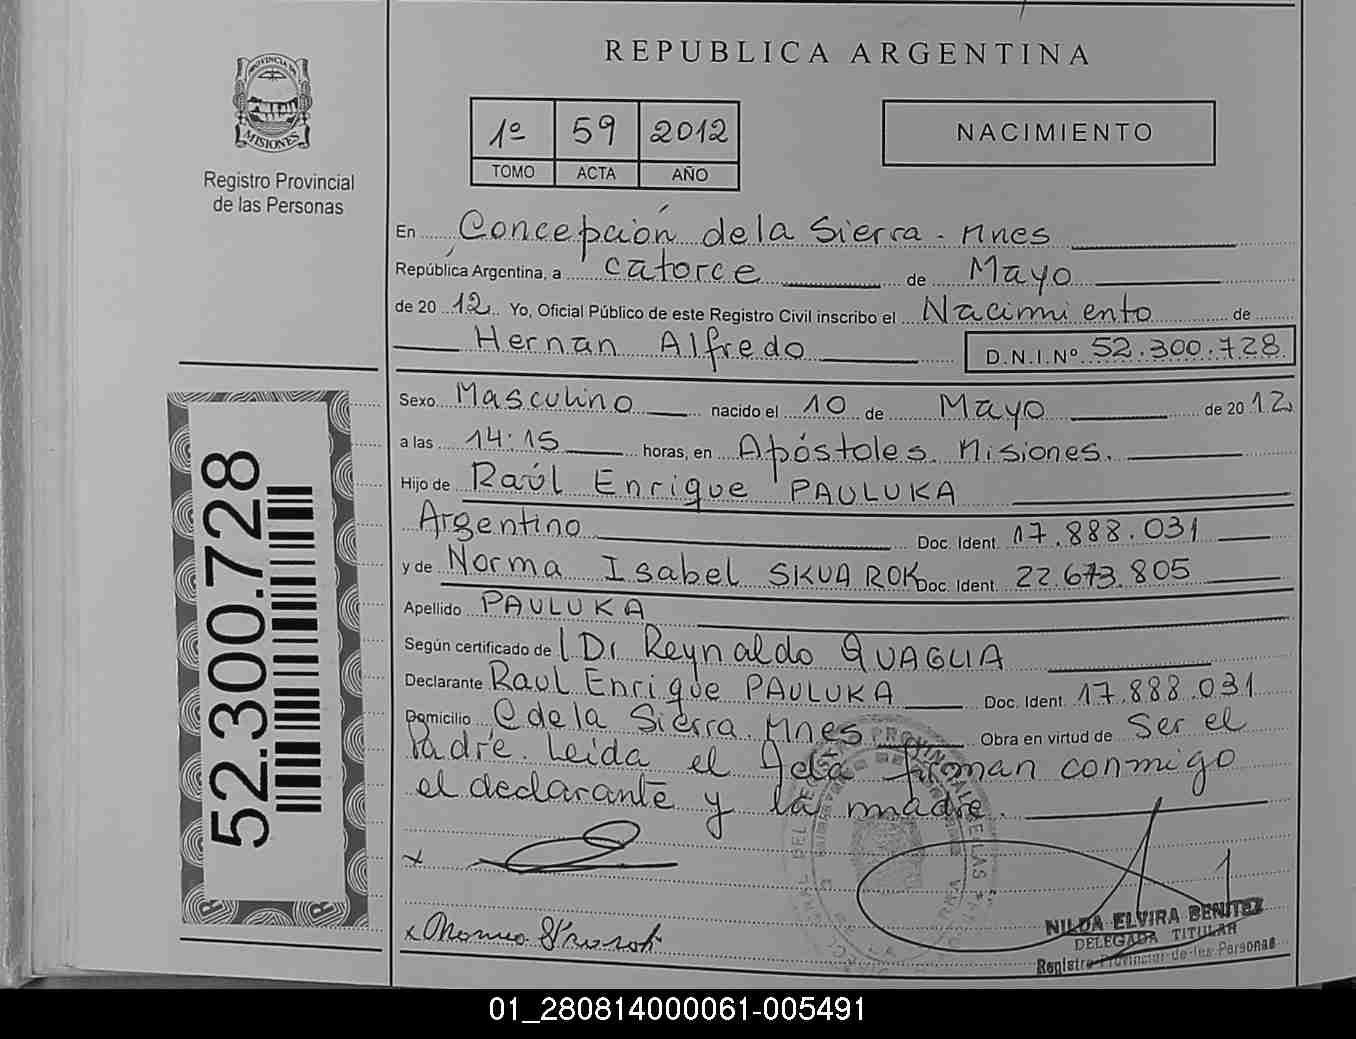 REPUBLICA ARGENTINA
PROVINCIA DE
MISIONES
Registro Provincial
de las Personas
1º 59 2012
TOMO ACTA AÑO
NACIMIENTO
En Concepción de la Sierra - Mnes
República Argentina, a catorce de Mayo
de 20 12 Yo, Oficial Público de este Registro Civil inscribo el Nacimiento de
Hernan Alfredo D.N.I.Nº 52.300.728
Sexo Masculino nacido el 10 de Mayo de 20 12
a las 14:15 horas, en Apóstoles. Misiones.
Hijo de Raúl Enrique PAULUKA
Argentino Doc. Ident. 17.888.031
y de Norma Isabel SKUAROK Doc. Ident. 22.673.805
Apellido PAULUKA
Según certificado de l Dr Reynaldo QUAGLIA
Declarante Raul Enrique PAULUKA Doc. Ident. 17.888.031
Domicilio C de la Sierra. Mnes Obra en virtud de Ser el
Padre. Leida el Acta firman conmigo
el declarante y la madre.
52.300.728
x
x
NILDA ELVIRA BENITEZ
DELEGADA TITULAR
Registro Provincial de las Personas
01_280814000061-005491